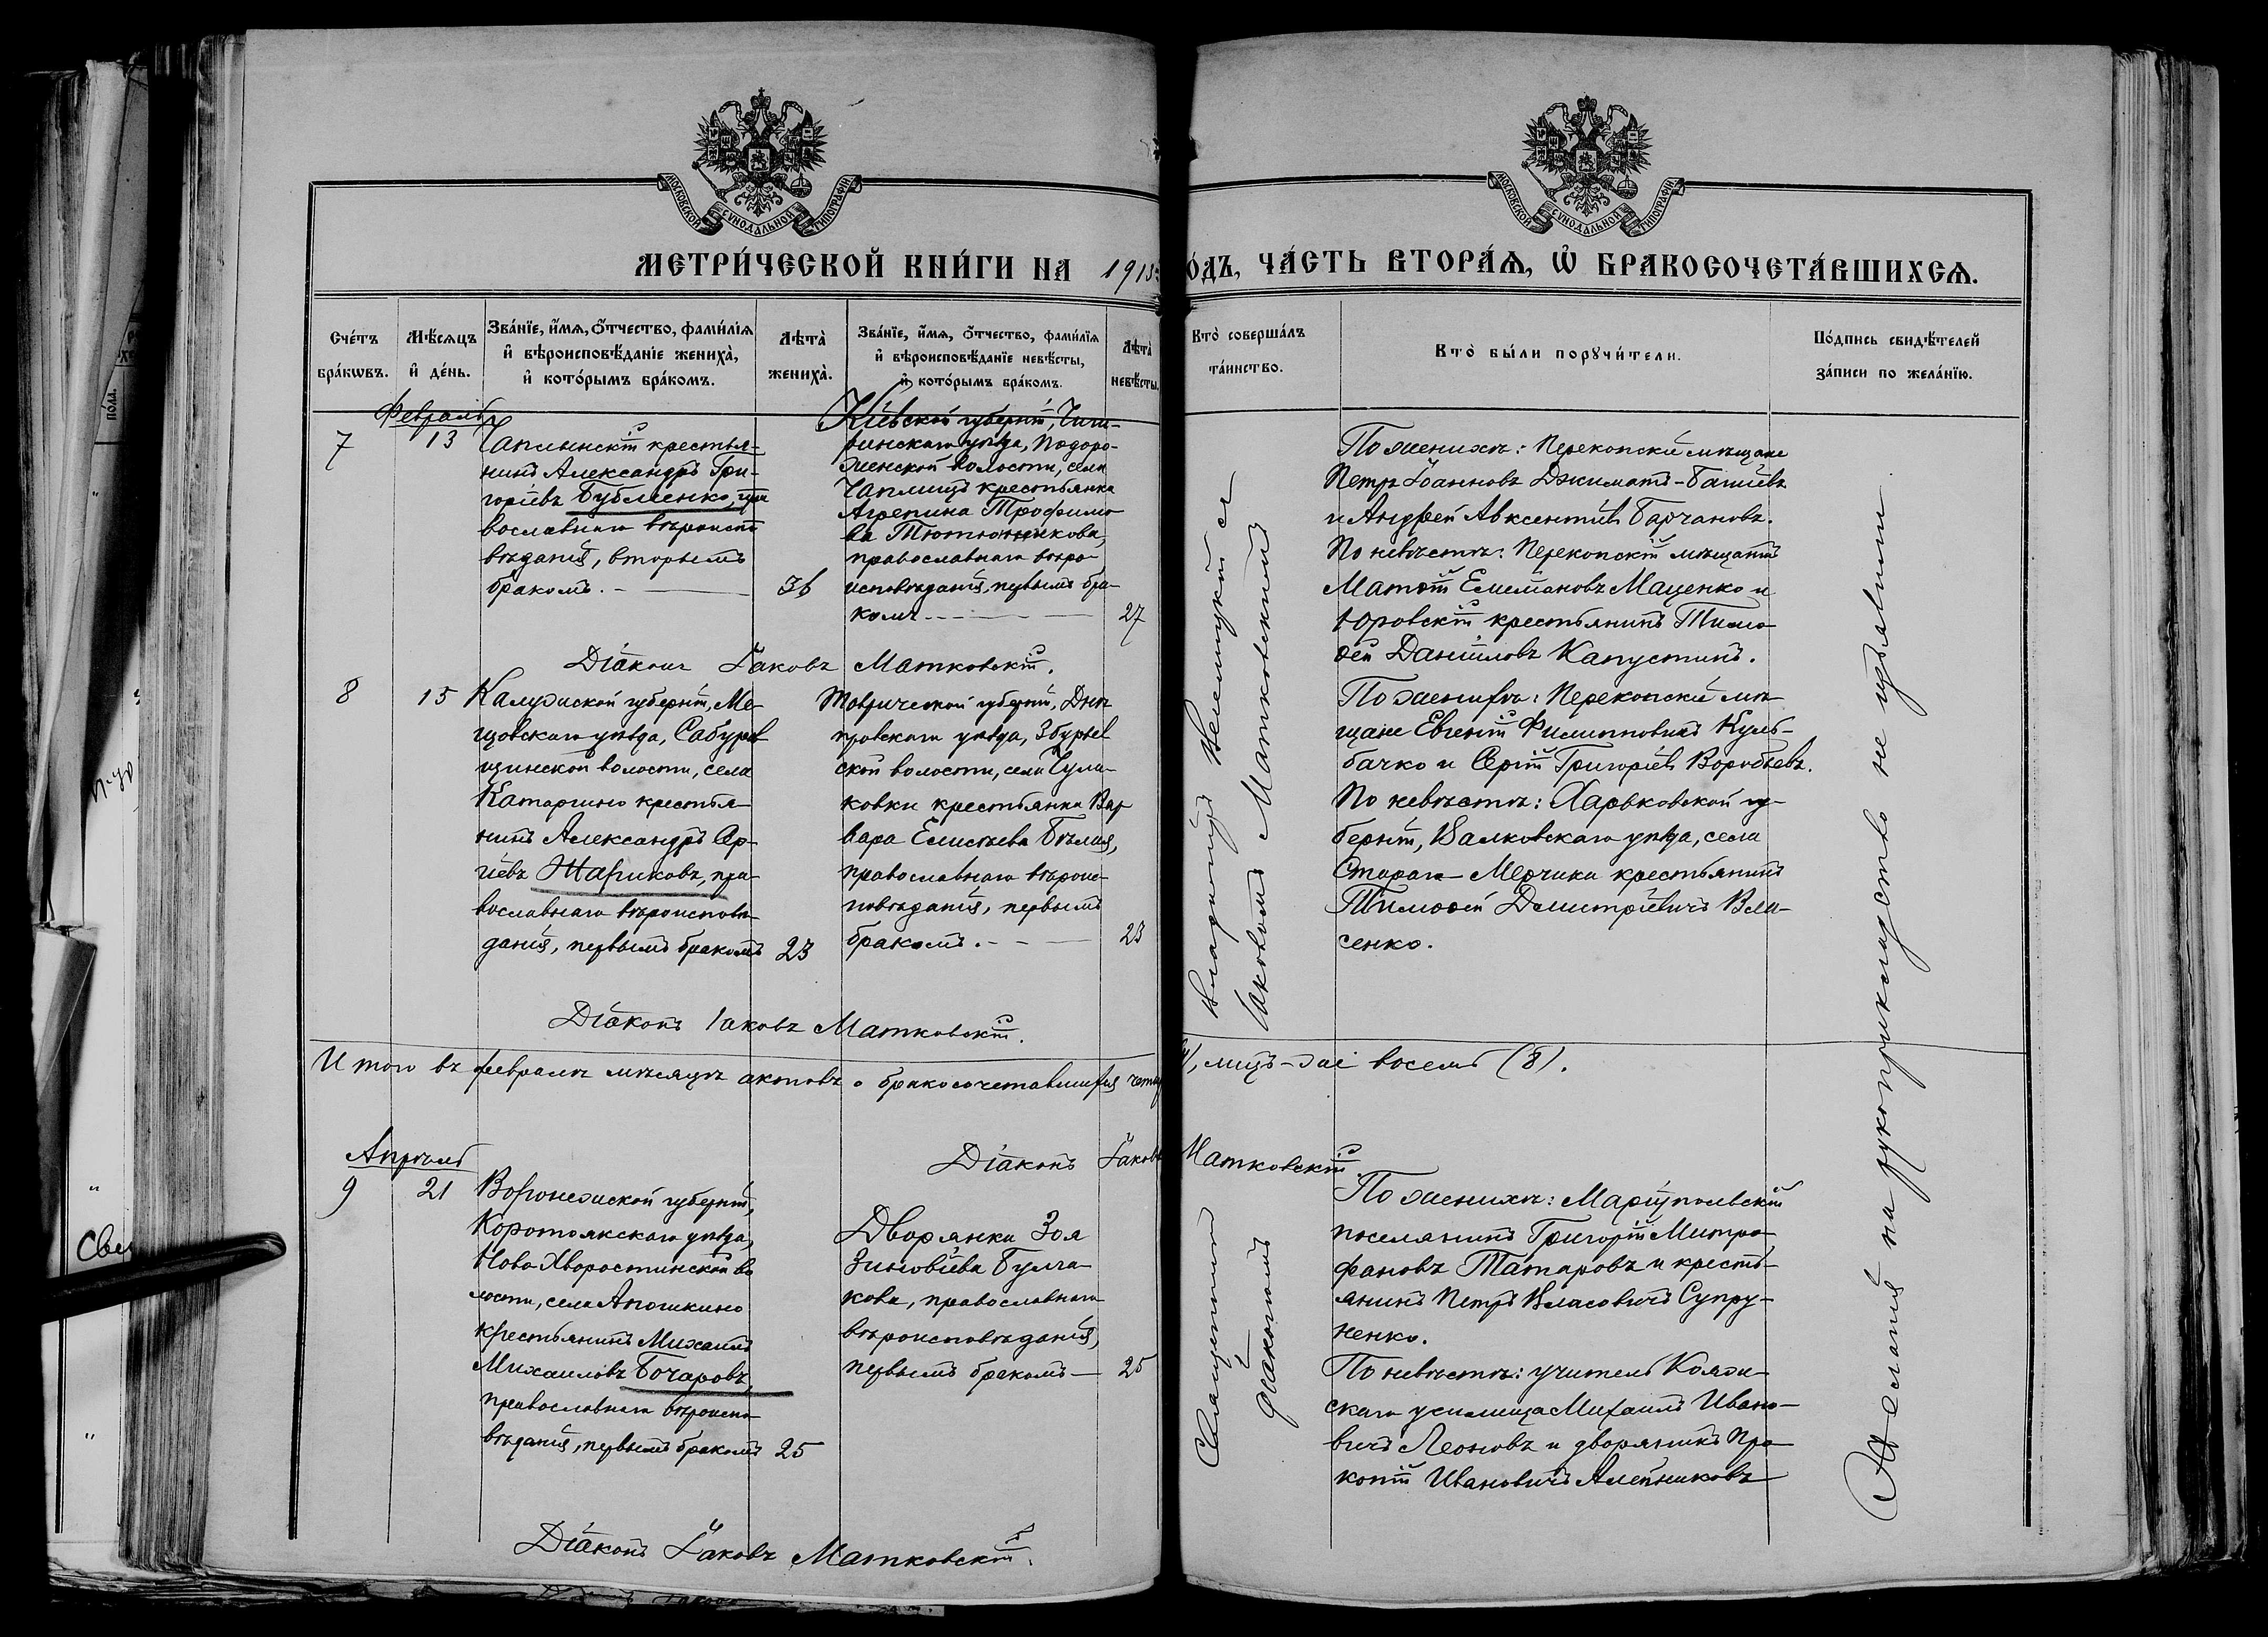 МОСКОВСКОЙ СѴНОДАЛЬНОЙ ТИПОГРАФІИ
МОСКОВСКОЙ СѴНОДАЛЬНОЙ ТИПОГРАФІИ
МЕТРИ́ЧЕСКОЙ КНИ́ГИ НА 1913
О́ДЪ, ЧА́СТЬ ВТОРА́Ѧ, Ѡ҆ БРАКОСОЧЕТА́ВШИХСѦ.
Сче́тъ бра́кѡвъ.
Мѣ́сѧцъ и҆ де́нь.
Зва́нїе, и҆́мѧ, ѻ҆́тчество, фами́лїѧ
и҆ вѣроисповѣ́данїе жениха̀,
и҆ кото́рымъ бра́комъ.
Лѣта̀ жениха̀.
Зва́нїе, и҆́мѧ, ѻ҆́тчество, фами́лїѧ
и҆ вѣроисповѣ́данїе невѣ́сты,
и҆ кото́рымъ бра́комъ.
Лѣта̀ невѣ́сты.
Кто̀ соверша́лъ
та́инство.
Кто̀ бы́ли порꙋчи́тели.
По́дпись свидѣ́телей
за́писи по жела́нїю.
Февраль
7
13
Чаплынскій крестья-
нинъ Александръ Гри-
горіевъ Бубленко, пра
вославнаго вѣроиспо
вѣданія, вторымъ
бракомъ.
36
Кіевской губерніи, Чиги-
ринскаго уѣзда, Подоро-
жненской волости, села
Чаплищъ крестьянка
Агрепина Трофимо
ва Тютюнникова,
православнаго вѣро-
исповѣданія, первымъ бра-
комъ
27
По женихѣ: Перекопскіе мѣщане
Петръ Іоанновъ Джиматъ-Багиевъ
и Андрей Авксентіевъ Барчановъ.
По невѣстѣ: Перекопскій мѣщанинъ
Матѳій Емеліановъ Маценко и
Юровскій крестьянинъ Тимо-
ѳей Даніиловъ Капустинъ.
Діаконъ Іаковъ Матковскій.
8
15
Калужской губерніи, Ме-
щовскаго уѣзда, Сабуров
щинской волости, села
Катаргино крестья-
нинъ Александръ Сер-
гіевъ Жариковъ, пра-
вославнаго вѣроисповѣ-
данія, первымъ бракомъ
23
Таврической губерніи, Днѣ
провскаго уѣзда, Збурьев
ской волости, села Чула-
ковки крестьянка Вар
вара Елисѣева Бѣлая,
православнаго вѣроис-
повѣданія, первымъ
бракомъ.
23
По женихѣ: Перекопскіе мѣ-
щане Евгеній Филипповичъ Куль-
бачко и Сергій Григоріевъ Воробьевъ.
По невѣстѣ: Харьковской гу-
берніи, Валковскаго уѣзда, села
Стараго-Мерчика крестьянинъ
Тимоѳей Димитріевичъ Вла-
сенко.
Діаконъ Іаковъ Матковскій.
Іаковомъ Матковскимъ
Итого въ февралѣ мѣсяцѣ актовъ о бракосочетавшихся четы
лицъ-же восемь (8).
Діаконъ Іаковъ Матковскій
Апрѣль
9
21
Воронежской губерніи,
Коротоякскаго уѣзда,
Ново-Хворостинской во
лости, села Апошкино
крестьянинъ Михаилъ
Михаиловъ Бочаровъ,
православнаго вѣроиспо-
вѣданія, первымъ бракомъ
25
Дворянка Зоя
Зиновіева Булга-
кова, православнаго
вѣроисповѣданія,
первымъ бракомъ
25
Священникъ
діакономъ
По женихѣ: Маріупольскій
поселянинъ Григорій Митро-
фановъ Татаровъ и кресть-
янинъ Петръ Власовичъ Супру-
ненко.
По невѣстѣ: учитель
скаго училища Михаилъ Ивано-
вичъ Леоновъ и дворянинъ Про-
копій Ивановичъ Алейниковъ
Діаконъ Іаковъ Матковскій.
Желанія на рукоприкладство не изъявили